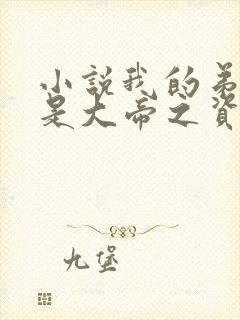 小說我的弟
是大帝之資
九堡